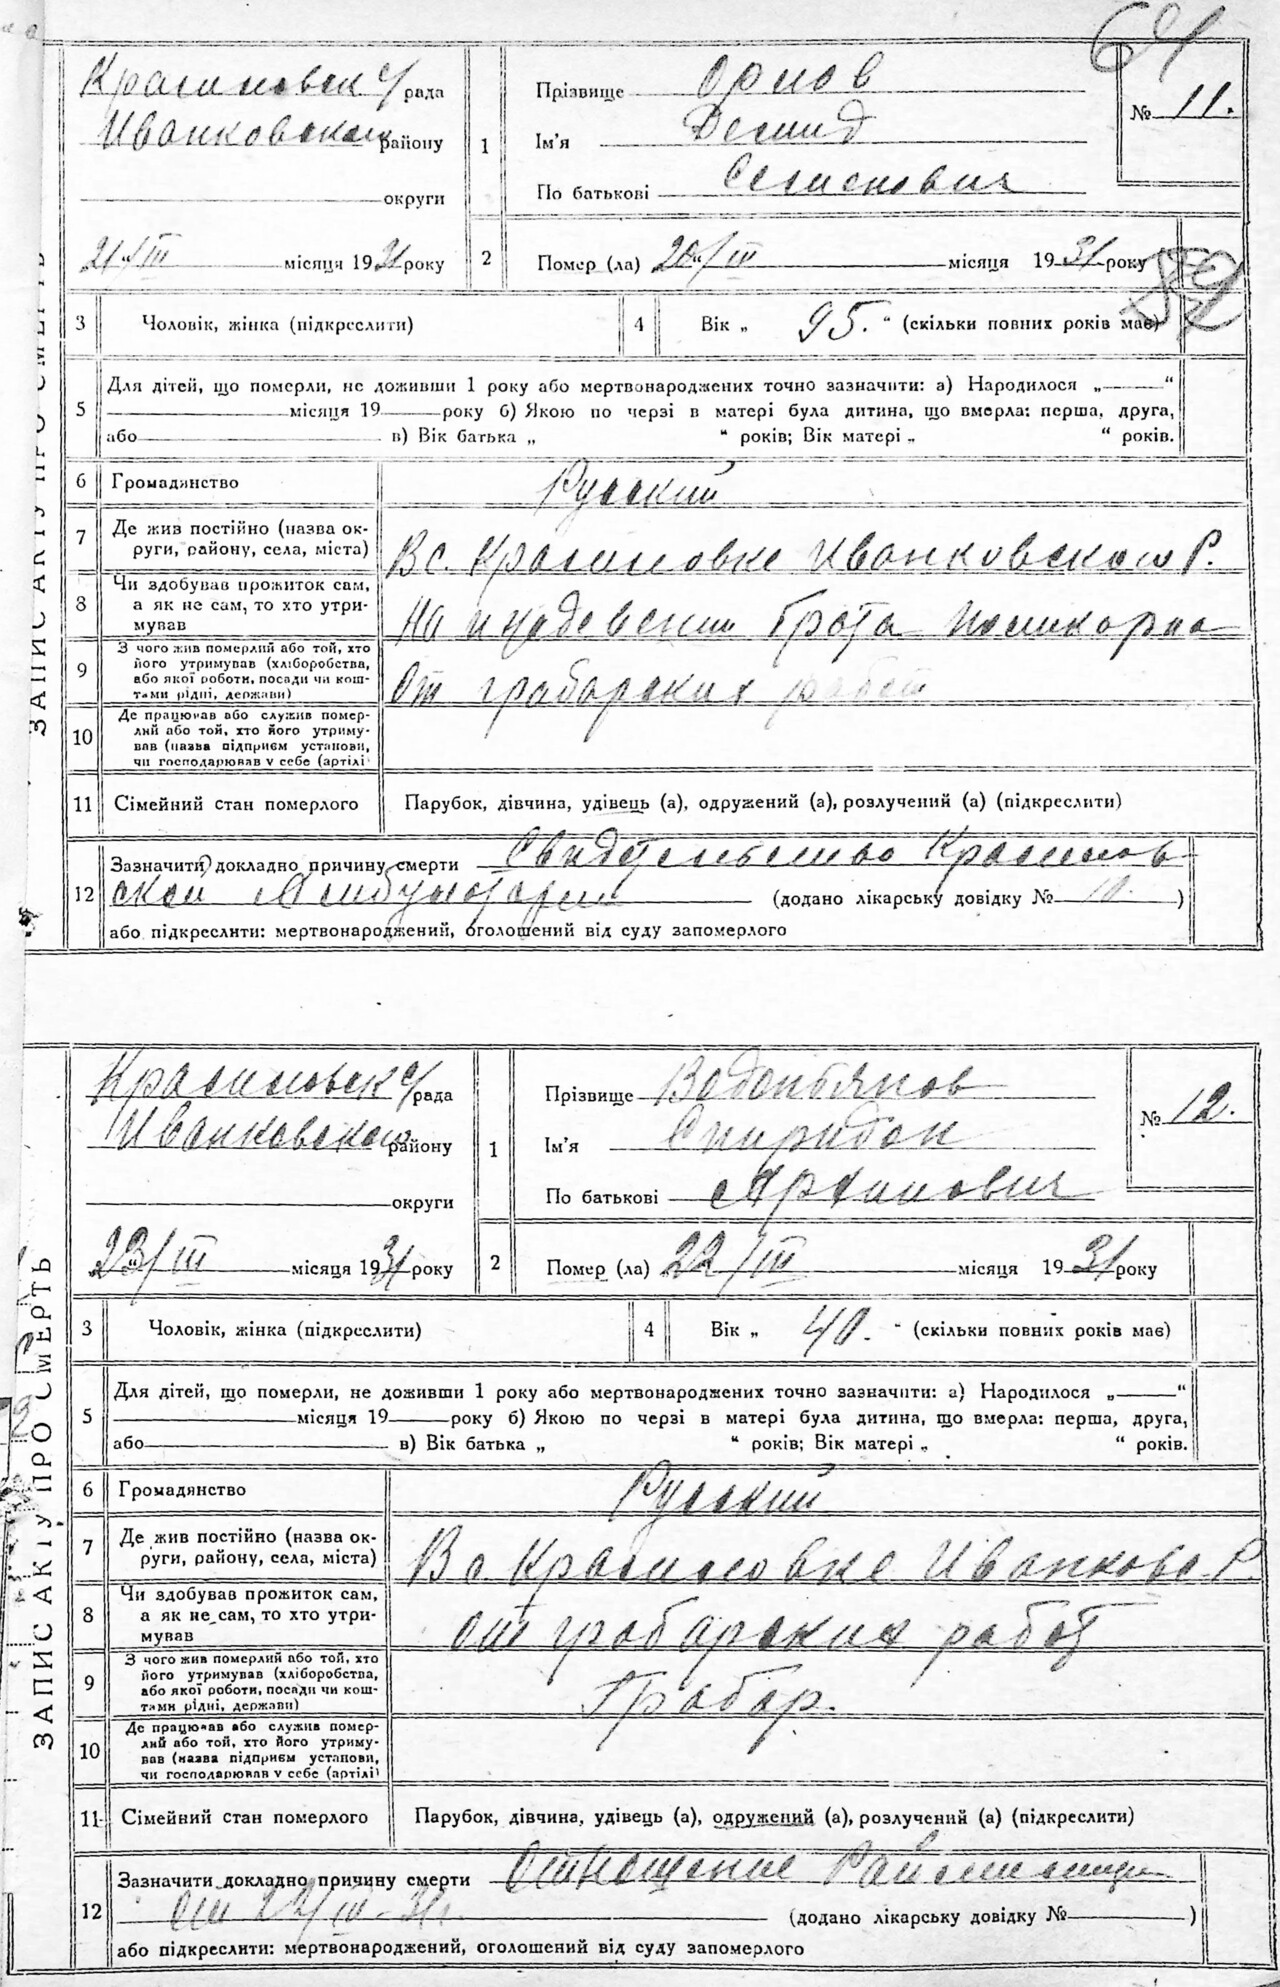 691
ЗАПИС АКТУ ПРО СМЕРТЬ
Красиловск с/рада
Иванковского району
округи
21/III місяця 1931 року
1
Прізвище Орлов
Ім'я Демид
По батькові
№ 11.
2
Помер (ла) 20/III місяця 1931 року
3
Чоловік, жінка (підкреслити)
4
Вік „ 95. “ (скільки повних років має)
5
Для дітей, що померли, не доживши 1 року або мертвонароджених точно зазначити: а) Народилося „ “
місяця 19 року б) Якою по черзі в матері була дитина, що вмерла: перша, друга,
або в) Вік батька „ “ років; Вік матері „ “ років.
6
Громадянство
Русский
7
Де жив постійно (назва ок-
руги, району, села, міста)
В с. Красиловке Иванковского Р.
8
Чи здобував прожиток сам,
а як не сам, то хто утри-
мував
На иждевении брата
9
З чого жив померлий або той, хто
його утримував (хліборобства,
або якої роботи, посади чи кош-
тами рідні, держави)
От грабарских работ
10
Де працював або служив помер-
лий або той, хто його утриму-
вав (назва підприєм установи,
чи господарював у себе (артілі
11
Сімейний стан померлого
Парубок, дівчина, удівець (а), одружений (а), розлучений (а) (підкреслити)
12
Зазначити докладно причину смерти Свидетельство Красилов
ской Амбулатории (додано лікарську довідку № 10. )
або підкреслити: мертвонароджений, оголошений від суду запомерлого
ЗАПИС АКТУ ПРО СМЕРТЬ
Красиловск с/рада
Иванковского району
округи
23/III місяця 1931 року
1
Прізвище Водопьянов
Ім'я Спиридон
По батькові Архипович
№ 12.
2
Помер (ла) 22/III місяця 1931 року
3
Чоловік, жінка (підкреслити)
4
Вік „ 40. “ (скільки повних років має)
5
Для дітей, що померли, не доживши 1 року або мертвонароджених точно зазначити: а) Народилося „ “
місяця 19 року б) Якою по черзі в матері була дитина, що вмерла: перша, друга,
або в) Вік батька „ “ років; Вік матері „ “ років.
6
Громадянство
Русский
7
Де жив постійно (назва ок-
руги, району, села, міста)
В с Красиловке Иванковс. Р.
8
Чи здобував прожиток сам,
а як не сам, то хто утри-
мував
От грабарских работ
9
З чого жив померлий або той, хто
його утримував (хліборобства,
або якої роботи, посади чи кош-
тами рідні, держави)
Грабар.
10
Де працював або служив помер-
лий або той, хто його утриму-
вав (назва підприєм установи,
чи господарював у себе (артілі)
11
Сімейний стан померлого
Парубок, дівчина, удівець (а), одружений (а), розлучений (а) (підкреслити)
12
Зазначити докладно причину смерти Отношение Раймилиции
От 22/III-31г. (додано лікарську довідку № )
або підкреслити: мертвонароджений, оголошений від суду запомерлого